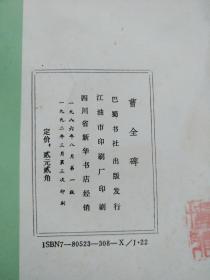 曹全碑
巴蜀书社出版发行
江油市印刷厂印刷
四川省新华书店经销
一九八六年八月第一版
一九九二年三月第三次印刷
定价：贰元贰角
ISBN7-80523-308-X/J·22